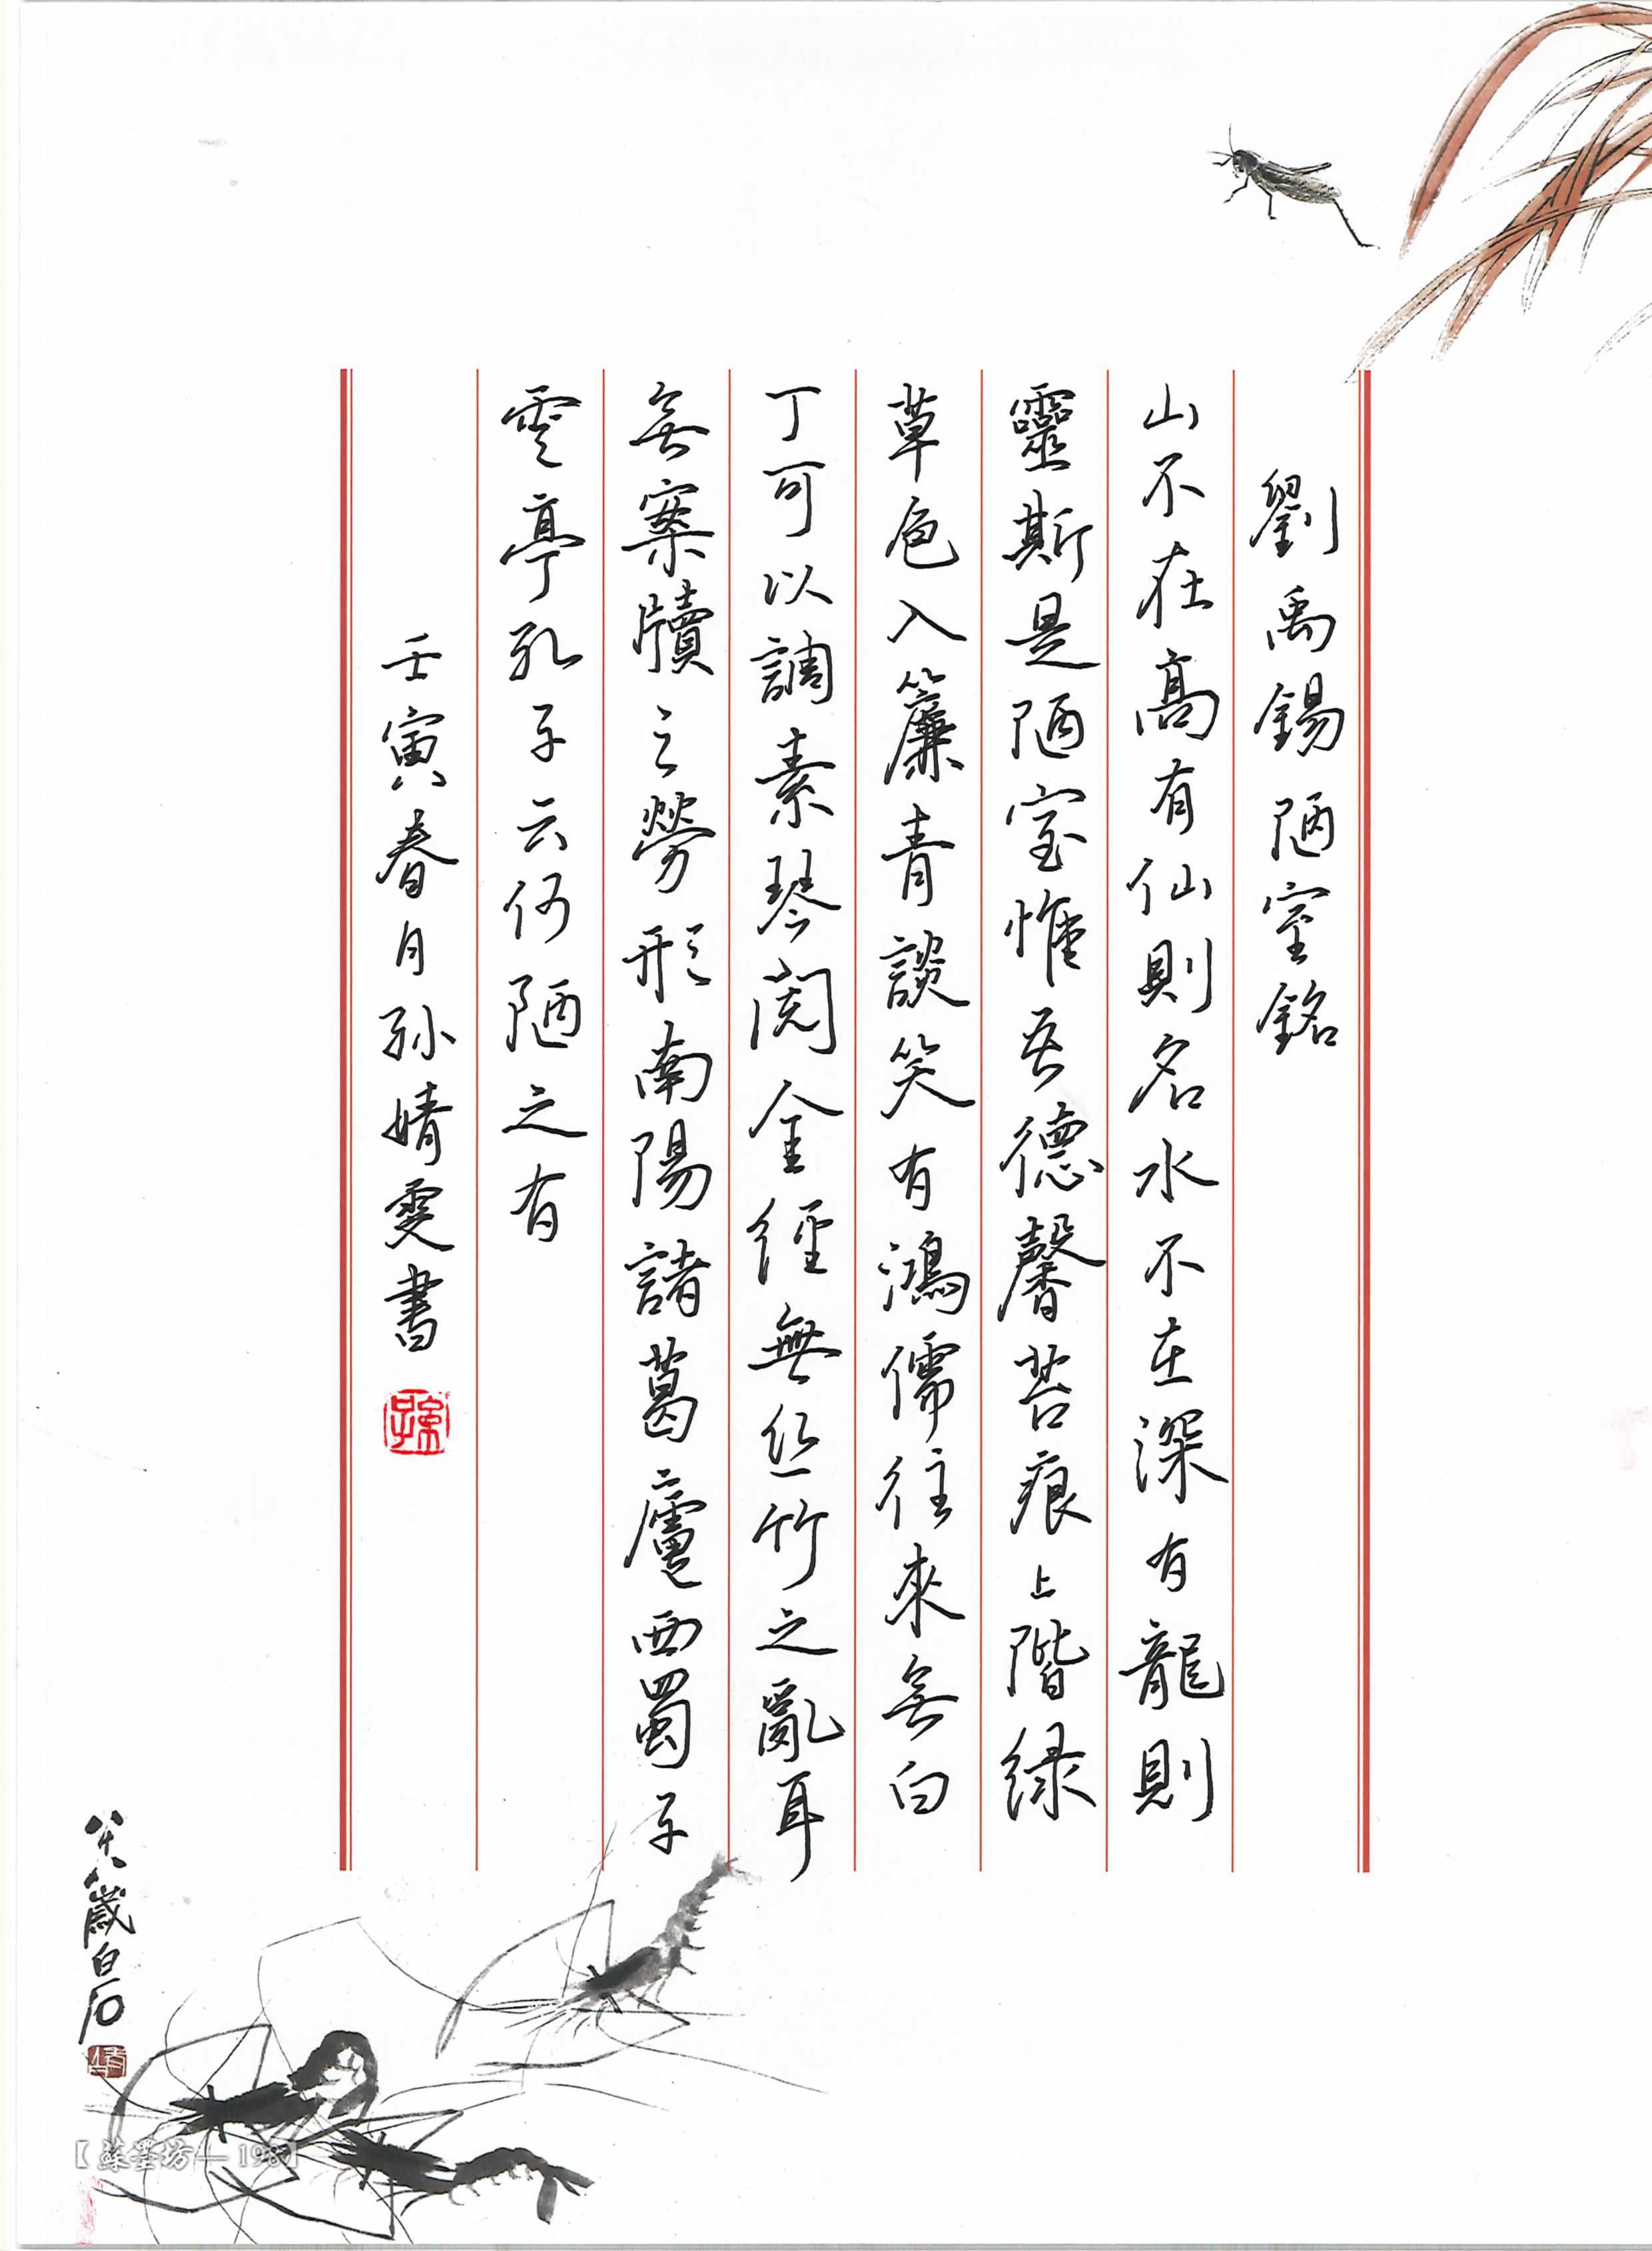 劉禹錫陋室銘
山不在高有仙則名水不在深有龍則
靈斯是陋室惟吾德馨苔痕上階绿
草色入簾青談笑有鴻儒往來無白
丁可以調素琴閱金經無丝竹之亂耳
無案牘之勞形南陽諸葛廬西蜀子
雲亭孔子云何陋之有
壬寅春月孙婧雯書
孫
八十八歲白石
【蘇墨坊—198】